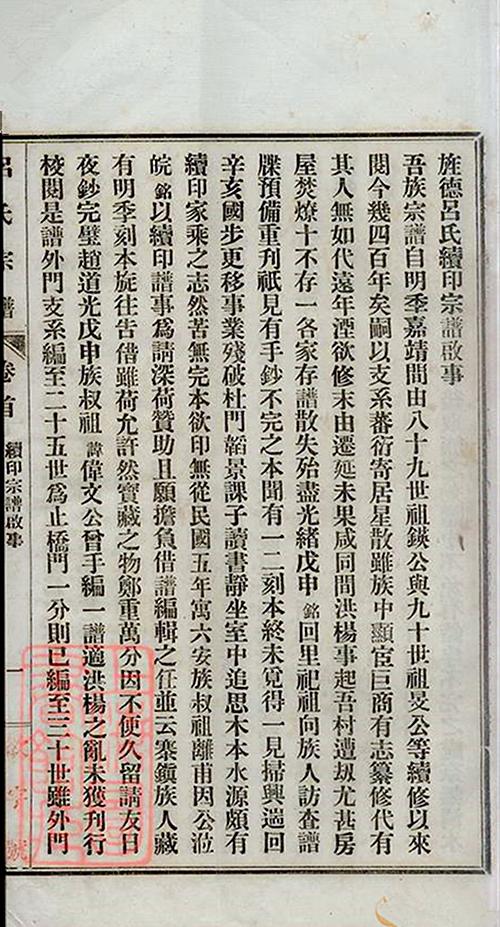 旌德呂氏續印宗譜啟事
吾族宗譜自明季嘉靖間由八十九世祖鍈公與九十世祖旻公等續修以來
閱今幾四百年矣嗣以支系蕃衍寄居星散雖族中顯宦巨商有志纂修代有
其人無如代遠年湮欲修末由遷延未果咸同間洪楊事起吾村遭刼尤甚房
屋焚燎十不存一各家存譜散失殆盡光緒戊申銘回里祀祖向族人訪查譜
牒預備重刊祇見有手鈔不完之本聞有一二刻本終未覓得一見掃興遄回
辛亥國步更移事業殘破杜門韜景課子讀書靜坐室中追思木本水源頗有
續印家乘之志然苦無完本欲印無從民國五年寓六安族叔祖離甫因公涖
皖銘以續印譜事爲請深荷贊助且願擔負借譜編輯之任並云寨鎮族人藏
有明季刻本旋往告借雖荷允許然寶藏之物鄭重萬分因不便久留請友日
夜鈔完璧趙道光戊申族叔祖諱偉文公曾手編一譜適洪楊之亂未獲刊行
校閱是譜外門支系編至二十五世爲止橋門一分則已編至三十世雖外門
呂氏宗譜
卷首
續印宗譜啟事
一
號